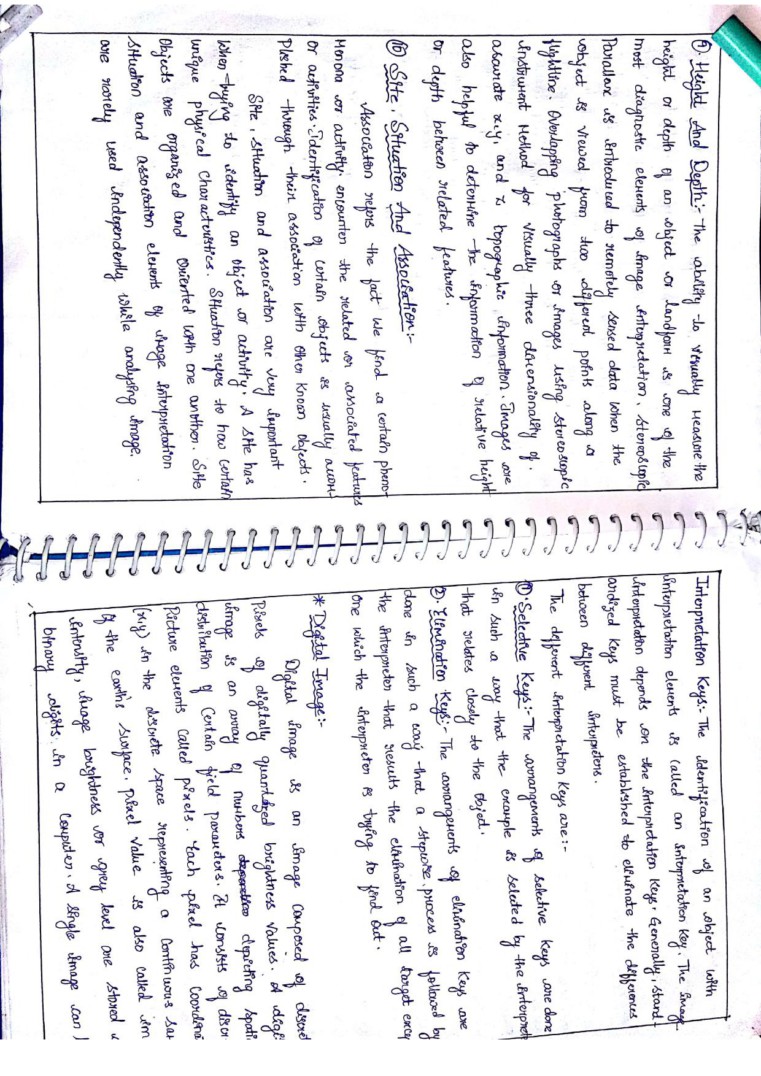 9). Height And Depth:- The ability to visually measure the
height or depth of an object or landform is one of the
most diagnostic elements of image interpretation. Stereoscopic
Parallax is introduced to remotely sensed data when the
object is viewed from two different points along a
flightline. Overlapping photographs or images using stereoscopic
instrument Method for visually three dimensionality of.
accurate x,y, and z topographic information. Images are
also helpful to determine the information of relative height
or depth between related features.
10) Site, Situation And Association:-
Association refers the fact we find a certain pheno-
Menona or activity. encounter the related or associated features
or activities. Identification of certain objects is usually accom-
Plished through their association with other known objects.
Site, Situation and association are very important
when trying to identify an object or activity. A site has
unique physical characteristics. Situation refers to how certain
Objects are organized and Oriented with one another. Site
situation and association elements of image interpretation
are rarely used independently while analysing image.
Interpretation Keys:- The identification of an object with
interpretation elements is called an interpretation key. The image
interpretation depends on the interpretation keys. Generally, stand-
ardized keys must be established to eliminate the differences
between different interpreters.
The different interpretation Keys are:-
1) Selective Keys:- The arrangements of selective keys are done
in such a way that the example is selected by the interpret
that relates closely to the object.
2). Elimination Keys:- The arrangements of elimination keys are
done in such a way that a stepwise process is followed by
the interpreter that results the elimination of all target excep
one which the interpreter is trying to find out.
* Digital Image:-
Digital image is an image composed of discret
Pixels of digitally quantized brightness values. A digit
image is an array of numbers depicting spati
distribution of Certain field parameters. It consists of discr
Picture elements called pixels. Each pixel has Coordina
(x,y) in the discrete space representing a continuous sa
of the earth's surface. Pixel value is also called im
intensity, image brightness or grey level are stored
binary digits in a computer. A single image can